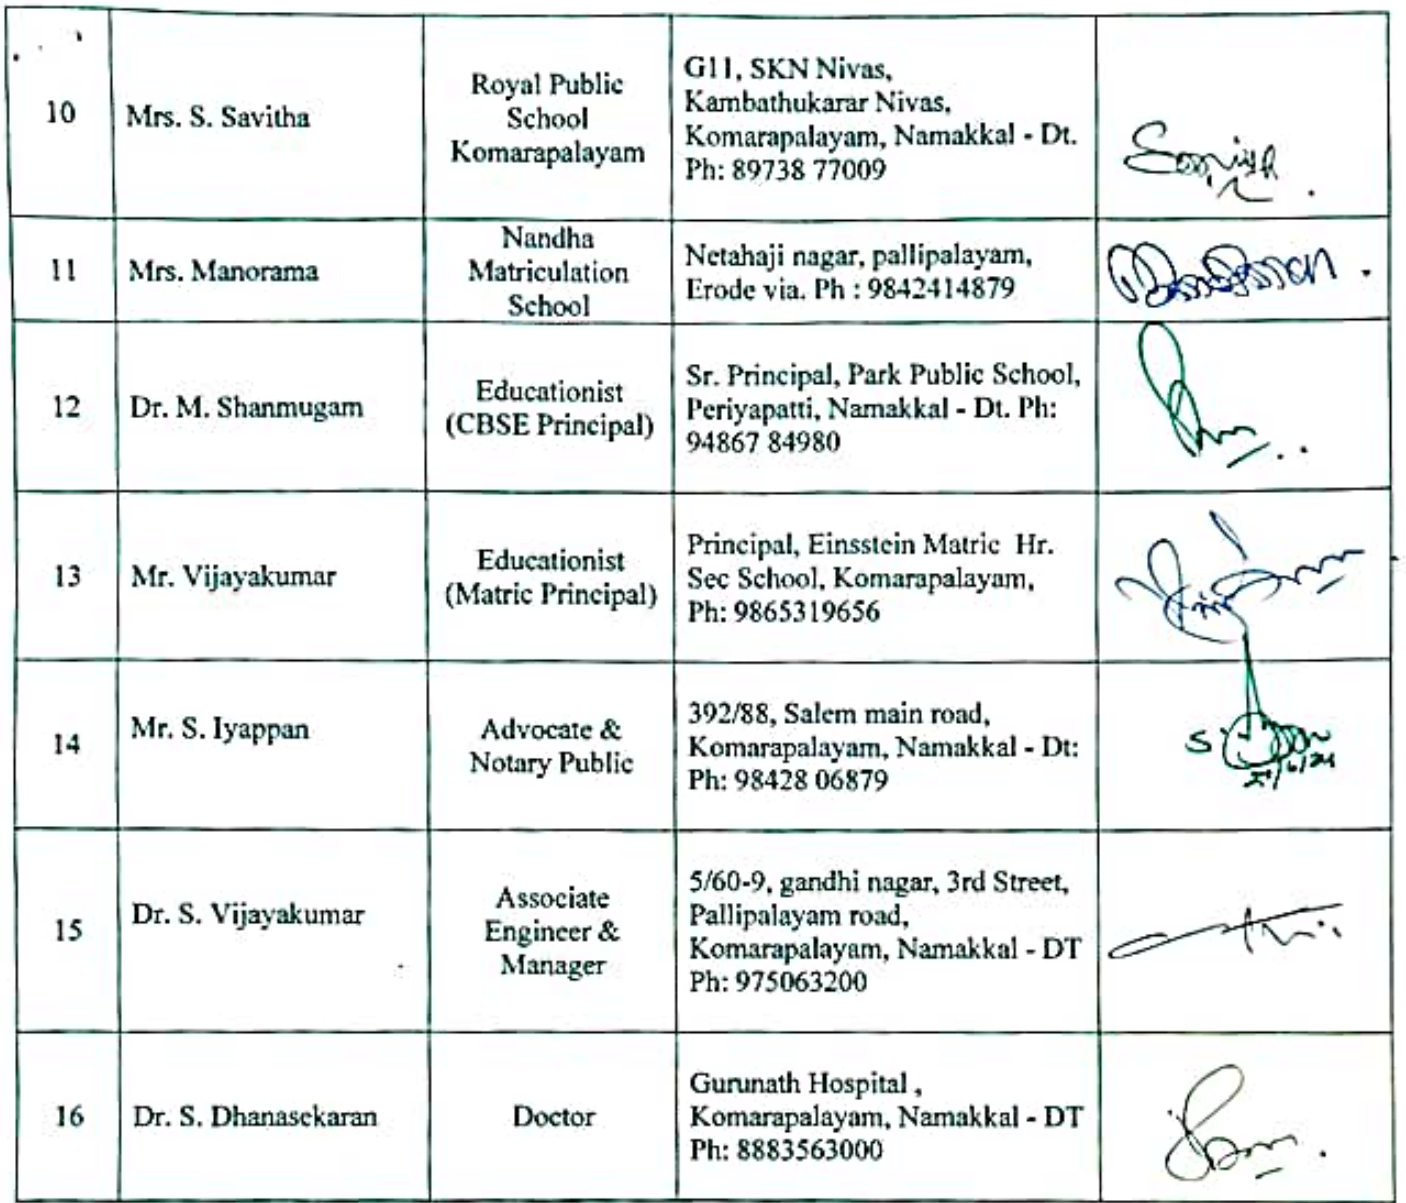 10
Mrs. S. Savitha
Royal Public
School
Komarapalayam
G11, SKN Nivas,
Kambathukarar Nivas,
Komarapalayam, Namakkal - Dt.
Ph: 89738 77009
11
Mrs. Manorama
Nandha
Matriculation
School
Netahaji nagar, pallipalayam,
Erode via. Ph : 9842414879
12
Dr. M. Shanmugam
Educationist
(CBSE Principal)
Sr. Principal, Park Public School,
Periyapatti, Namakkal - Dt. Ph:
94867 84980
13
Mr. Vijayakumar
Educationist
(Matric Principal)
Principal, Einsstein Matric Hr.
Sec School, Komarapalayam,
Ph: 9865319656
14
Mr. S. Iyappan
Advocate &
Notary Public
392/88, Salem main road,
Komarapalayam, Namakkal - Dt:
Ph: 98428 06879
15
Dr. S. Vijayakumar
Associate
Engineer &
Manager
5/60-9, gandhi nagar, 3rd Street,
Pallipalayam road,
Komarapalayam, Namakkal - DT
Ph: 975063200
16
Dr. S. Dhanasekaran
Doctor
Gurunath Hospital ,
Komarapalayam, Namakkal - DT
Ph: 8883563000